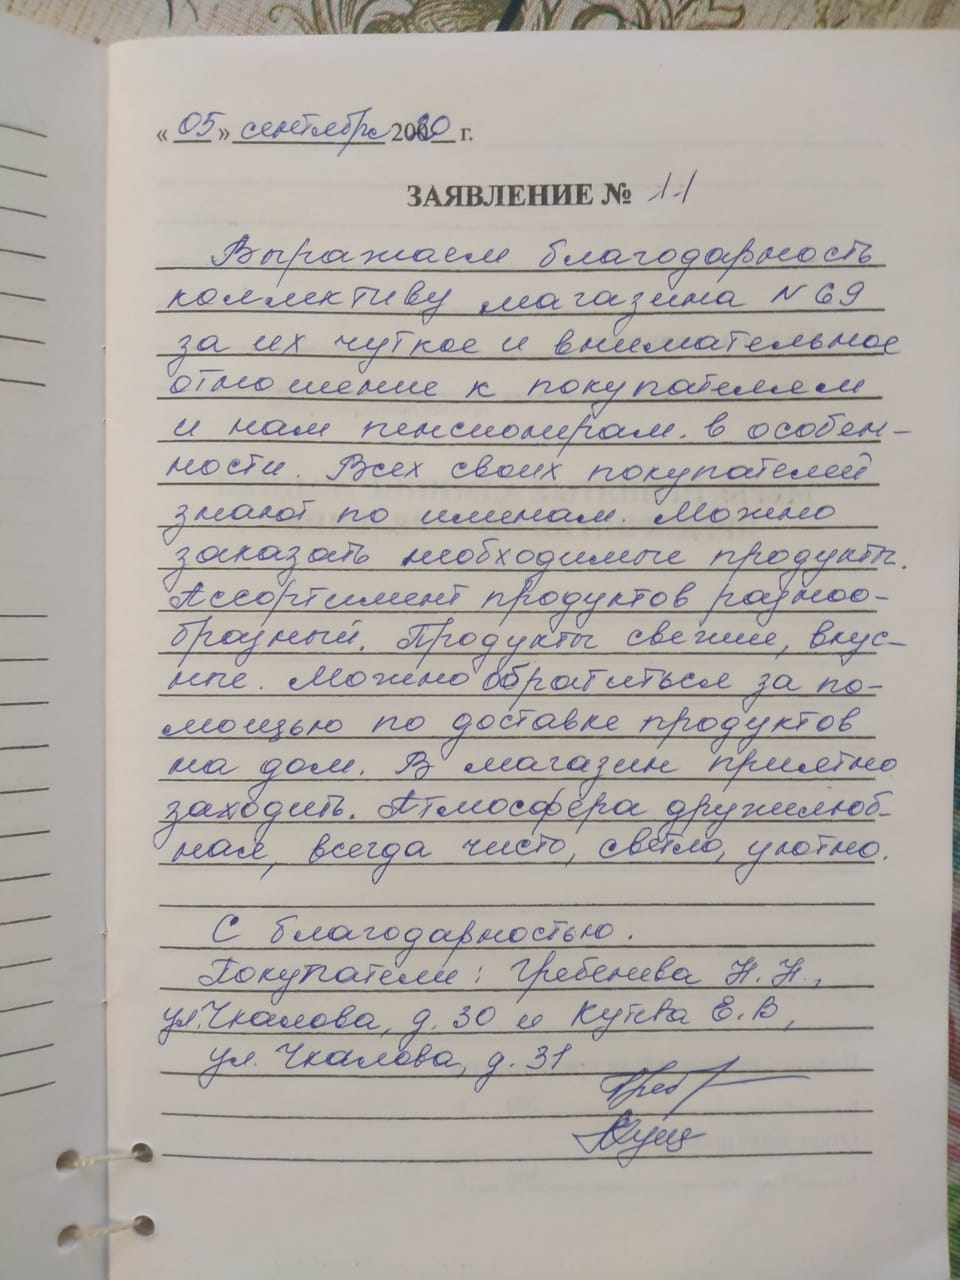 « 05 » сентября 2020 г.
ЗАЯВЛЕНИЕ № 11
Выражаем благодарность
коллективу магазина N 69
за их чуткое и внимательное
отношение к покупателям
и нам пенсионерам. в особен-
ности. Всех своих покупателей
знают по именам. Можно
заказать необходимые продукты.
Ассортимент продуктов разноо-
бразный. Продукты свежие, вкус-
ные. Можно обратиться за по-
мощью по доставке продуктов
на дом. В магазин приятно
заходить. Атмосфера дружелюб-
ная, всегда чисто, светло, уютно.
С благодарностью.
Покупатели: Гребенева Н.Н.,
ул. Чкалова, д. 30 и Е.В,
ул. Чкалова, д. 31